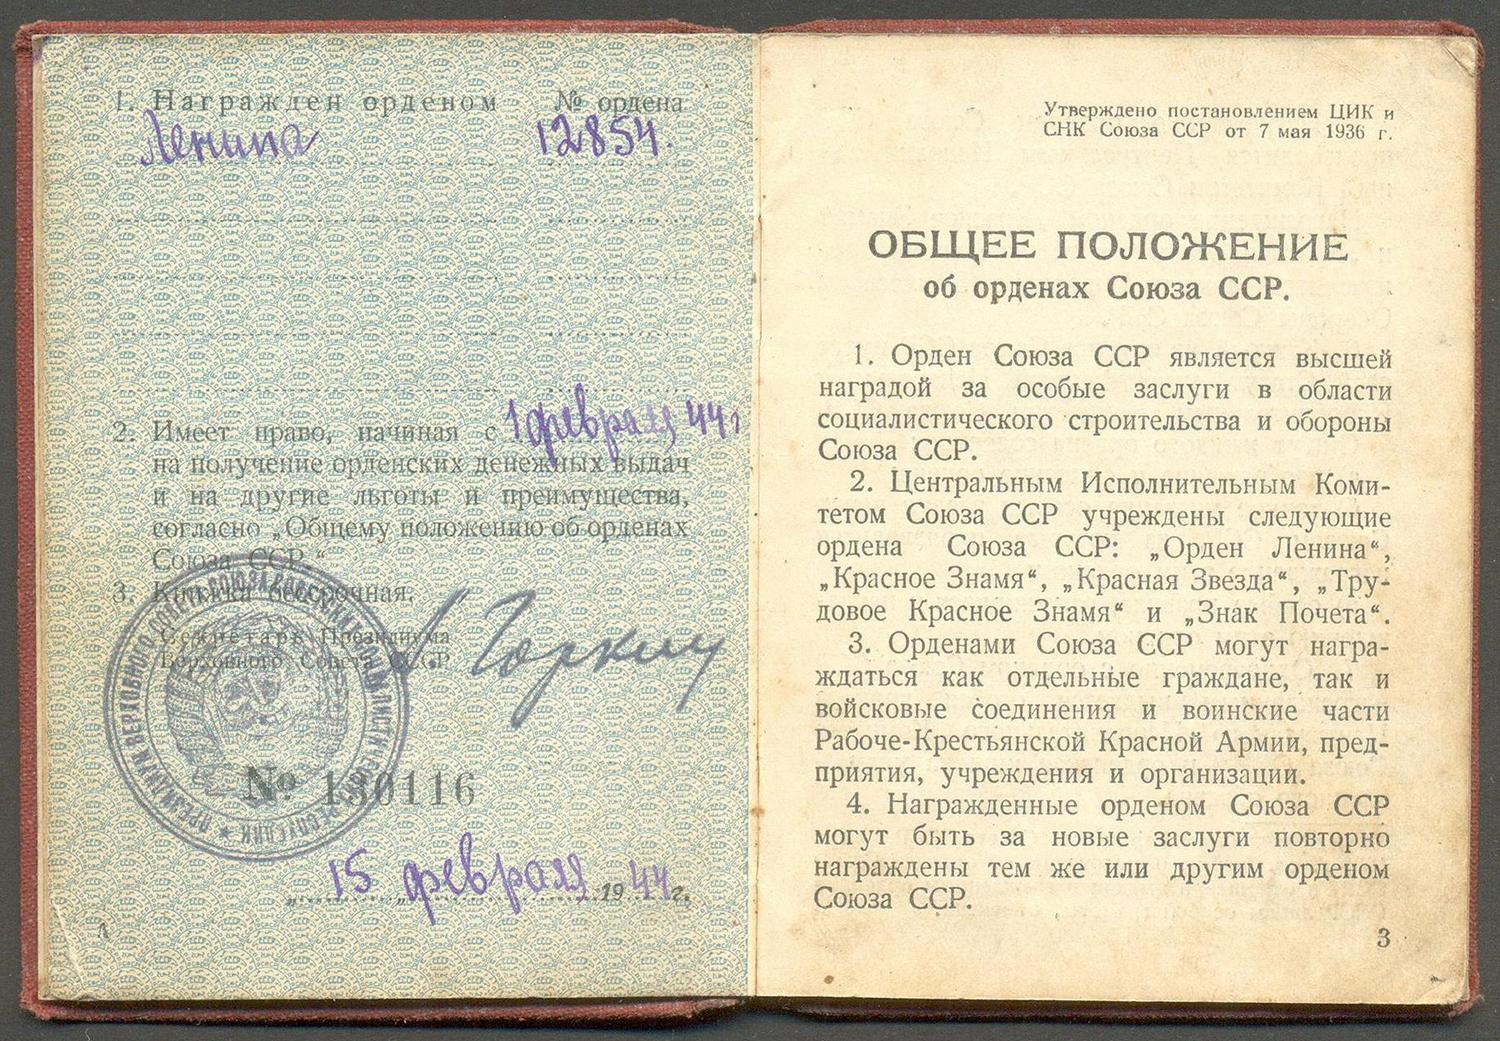 1. Награжден орденом № ордена
Ленина 12854.
2. Имеет право, начиная с 1 февраля 44 г
на получение орденских денежных выдач
и на другие льготы и преимущества,
согласно „Общему положению об орденах
Союза ССР.“
3. Книжка бессрочная.
Секретарь Президиума
Верховного Совета СССР
А Горкин
№ 130116
„15 февраля 1944 г.
Утверждено постановлением ЦИК и
СНК Союза ССР от 7 мая 1936 г.
ОБЩЕЕ ПОЛОЖЕНИЕ
об орденах Союза ССР.
1. Орден Союза ССР является высшей
наградой за особые заслуги в области
социалистического строительства и обороны
Союза ССР.
2. Центральным Исполнительным Коми-
тетом Союза ССР учреждены следующие
ордена Союза ССР: „Орден Ленина“,
„Красное Знамя“, „Красная Звезда“, „Тру-
довое Красное Знамя“ и „Знак Почета“.
3. Орденами Союза ССР могут награ-
ждаться как отдельные граждане, так и
войсковые соединения и воинские части
Рабоче-Крестьянской Красной Армии, пред-
приятия, учреждения и организации.
4. Награжденные орденом Союза ССР
могут быть за новые заслуги повторно
награждены тем же или другим орденом
Союза ССР.
3